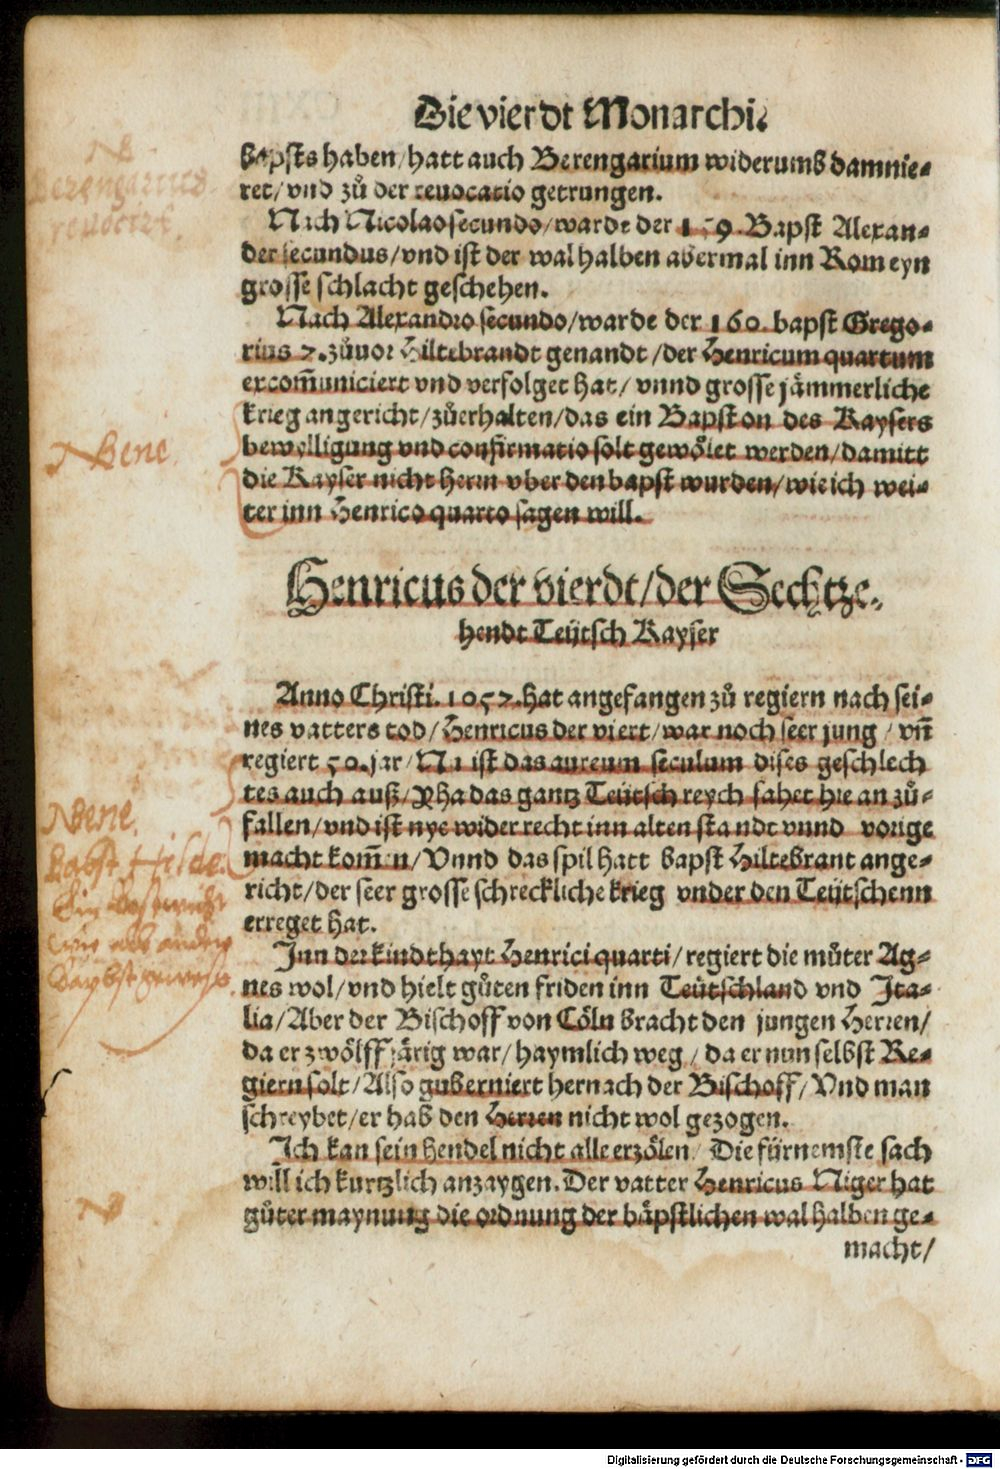 Die vierdt Monarchi.
bapsts haben/hatt auch Berengarium widerumb damnie-
ret/vnd zů der reuocatio getrungen.
NB
Berengarius
revocirt.
Nach Nicolao secundo/warde der 159. Bapst Alexan-
der secundus/vnd ist der wal halben abermal inn Rom eyn
grosse schlacht geschehen.
Nach Alexandro secundo/warde der 160. bapst Grego-
rius 7. zůuor Hiltebrandt genandt/der Henricum quartum
excom̃uniciert vnd verfolget hat/vnnd grosse jämmerliche
krieg angericht/zůerhalten/das ein Bapst on des Kaysers
bewylligung vnd confirmatio solt gewölet werden/damitt
die Kayser nicht herrn vber den bapst wurden/wie ich wei-
ter inn Henrico quarto sagen will.
NBene
Henricus der vierdt/der Sechtze-
hendt Teütsch Kayser
Anno Christi. 1057. hat angefangen zů regiern nach sei-
nes vatters tod/Henricus der viert/war noch seer jung/vn̄
regiert 50. jar/Nu ist das aureum seculum dises geschlech
tes auch auß/Vha das gantz Teütsch reych fahet hie an zů-
fallen/vnd ist nye wider recht inn alten standt vnnd vorige
macht kom̃en/Vnnd das spil hatt bapst Hiltebrant ange-
richt/der seer grosse schreckliche krieg vnder den Teütschenn
erreget hat.
NBene.
Babst
Ein
wie
Inn der kindthayt Henrici quarti/regiert die můter Ag-
nes wol/vnd hielt gůten friden inn Teütschland vnd Ita-
lia/Aber der Bischoff von Cöln bracht den jungen Herren/
da er zwölff järig war/haymlich weg/da er nun selbst Re-
giern solt/Also guberniert hernach der Bischoff/Vnd man
schreybet/er hab den Herren nicht wol gezogen.
Ich kan sein hendel nicht alle erzölen/Die fürnemste sach
will ich kurtzlich anzaygen. Der vatter Henricus Niger hat
gůter maynung die ordnung der bäpstlichen wal halben ge-
macht/
NB
Digitalisierung gefördert durch die Deutsche Forschungsgemeinschaft - DFG